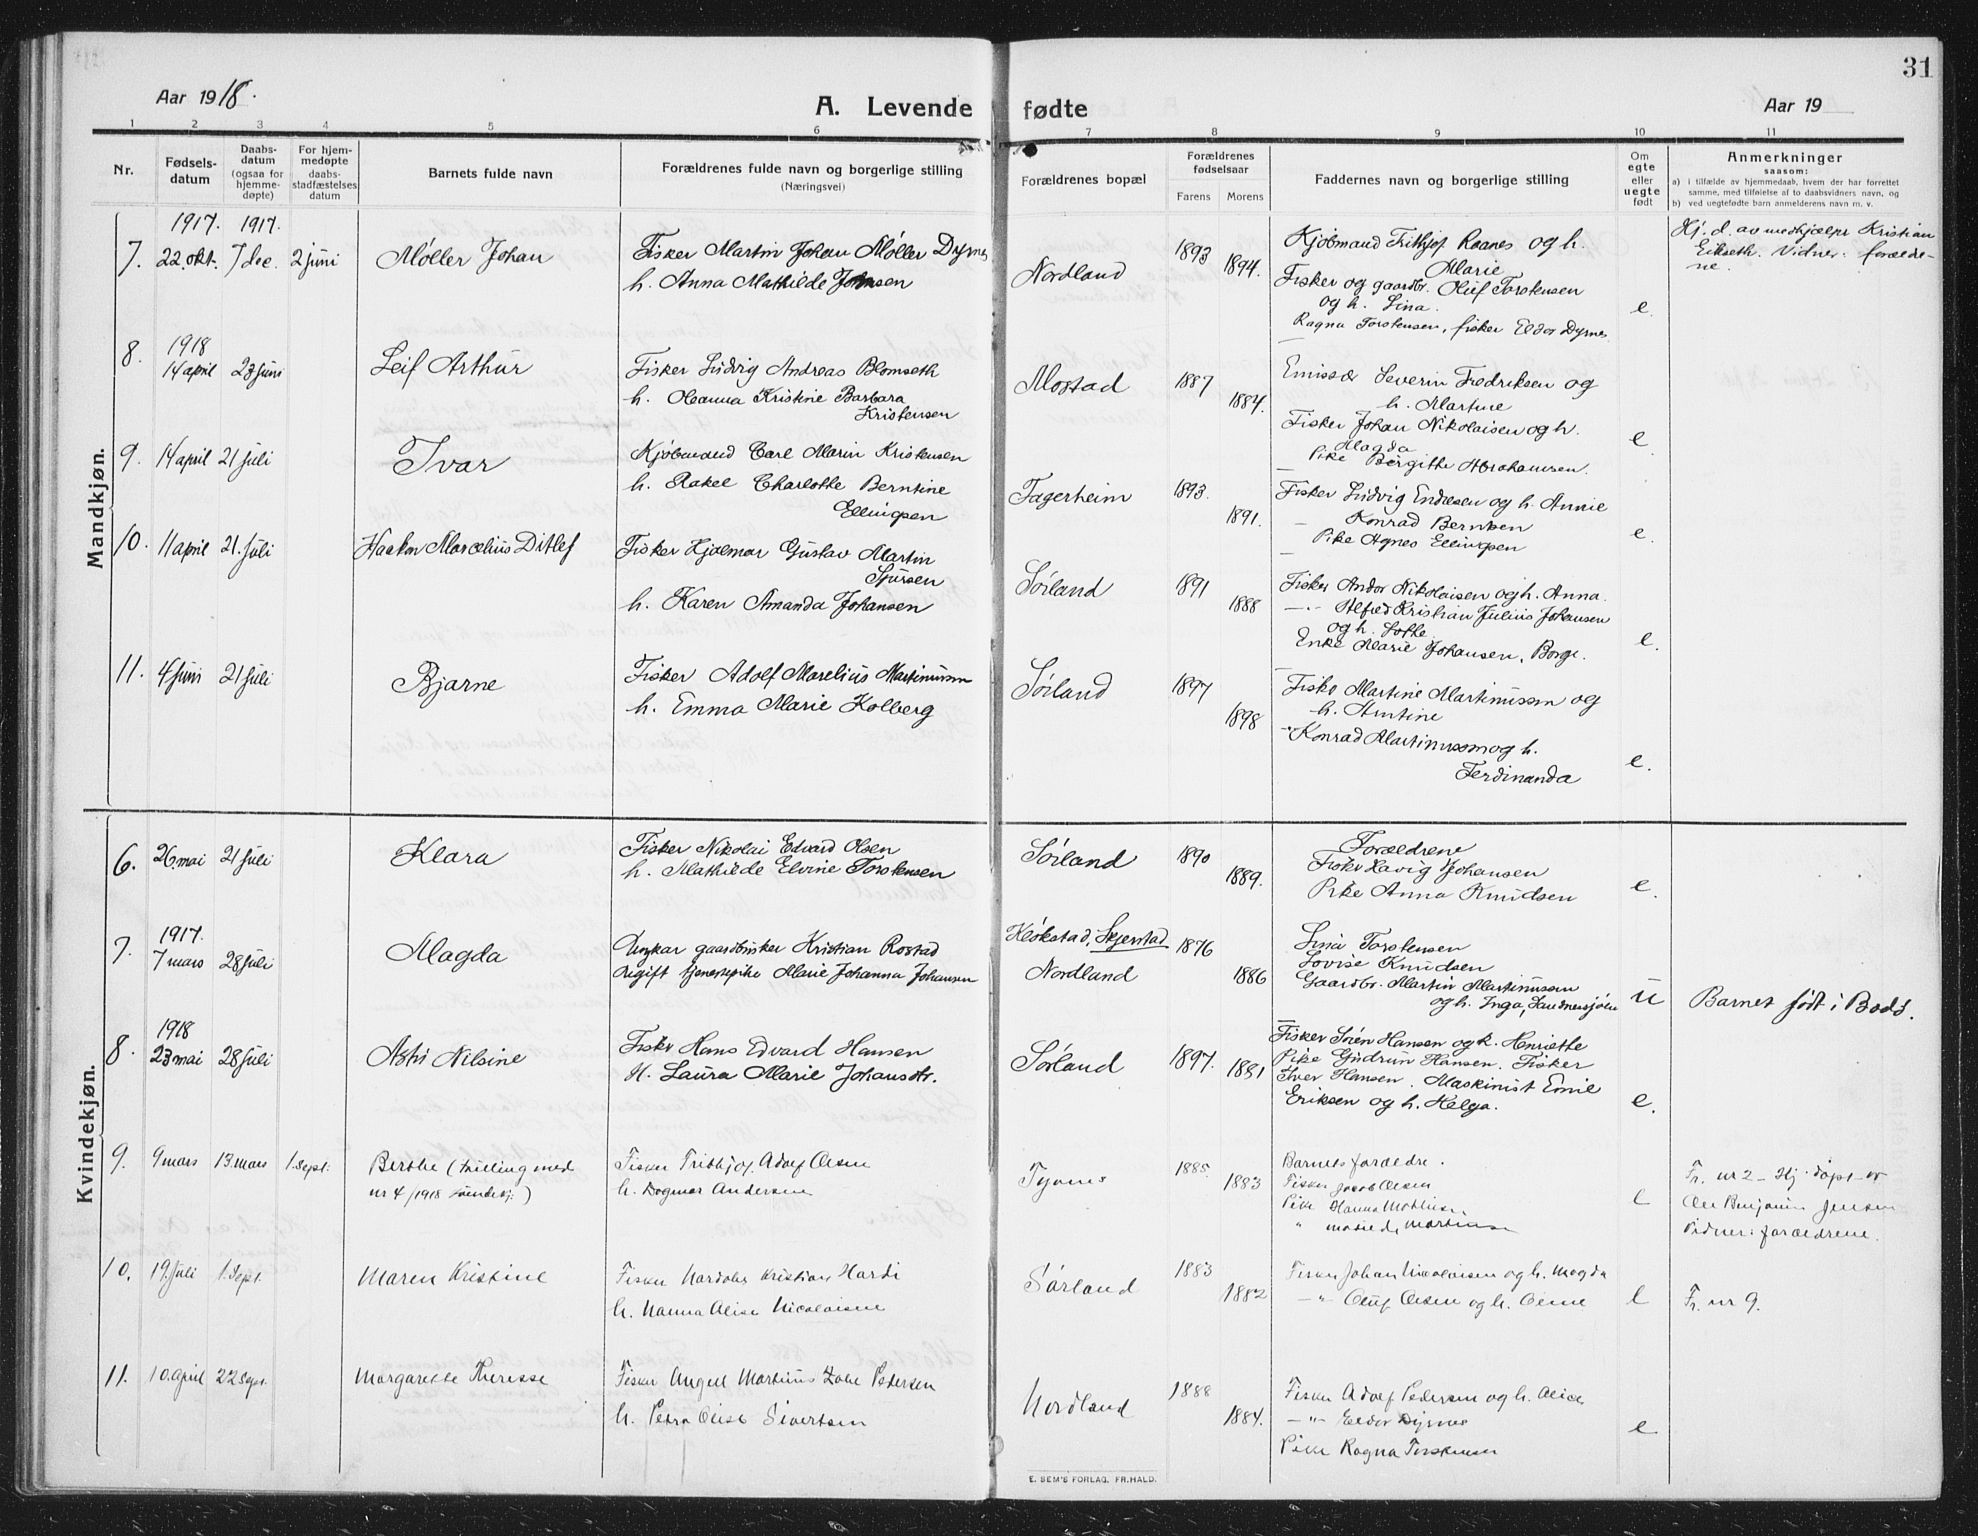 31
Aar 1918.
A. Levende fødte
Aar 19
1 2 3 4 5 6 7 8 9 10 11
Nr.
Fødsels-
datum
Daabs-
datum
(ogsaa for
hjemme-
døpte)
For hjem-
medøpte
daabs-
stadfæstelses
datum
Barnets fulde navn
Forældrenes fulde navn og borgerlige stilling
(Næringsvei)
Forældrenes bopæl
Forældrenes
fødselsaar
Farens Morens
Faddernes navn og borgerlige stilling
Om
egte
eller
uegte
født
Anmerkninger
saasom:
a) i tilfælde av hjemmedaab, hvem der har forrettet
samme, med tilføielse af to daabsvidners navn, og
b) ved uegtefødte barn anmelderens navn m. v.
Mandkjøn.
1917. 1917.
7. 22. okt. 7 dec. 2 juni
Møller Johan
Fisker Martin Johan Møller Dyrnes
h. Anna Mathilde Johnsen
Nordland
1893 1894.
Kjøbmand Frithjof Raanes og h.
Marie
Fisker og gaardbr. Oluf Torstensen
og h. Lina.
Ragna Torstensen, fisker Eldor Dyrnes
e.
Hj. d. av medhjælper Kristian
Eikseth. Vidner: forældre-
ne.
8. 1918
14 april 23 juni
Leif Arthur
Fisker Ludvig Andreas Blomseth
h. Oleanna Kristine Barbara
Kristensen
Mostad
1887 1884.
Emissær Severin Fredriksen og
h. Martine
Fisker Johan Nikolaisen og h.
Magda
Pike Bergithe Abrahamsen.
e.
9. 14 april 21 juli
Ivar
Kjøbmand Carl Marin Kristensen
h. Rakel Charlotte Berntine
Ellingsen
Fagerheim
1893. 1891.
Fisker Ludvig Endresen og h. Annie
— Konrad Berntsen
Pike Agnes Ellingsen
e.
10. 11 april 21. juli
Haakon Marcelius Ditlef
Fisker Hjalmar Gustav Martin
Sjursen
h. Karen Amanda Johansen
Sørland
1891 1888
Fisker Andor Nikolaisen og h. Anna.
—"— Alfred Kristian Julius Johansen
og h. Lotte
Enke Marie Johansen, Borge.
e.
11. 4 juni 21 juli
Bjarne
Fisker Adolf Marelius Martinussen
h. Emma Marie Kolberg
Sørland
1897 1898
Fisker Martine Martinussen og
h. Antine
-"- Konrad Martinussen og h.
Ferdinanda
e.
Kvindekjøn.
6. 26. mai 21 juli
Klara
Fisker Nikolai Edvard Olsen
h. Mathilde Elvine Torstensen
Sørland
1890 1889.
Forældrene
Fisker Havig Johansen
Pike Anna Knudsen
e.
7. 1917.
7 mars 28 juli
Magda
Ungkar gaardbruker Kristian Rostad
Ugift tjenestepike Marie Johanna Johansen
Kløkstad, Skjerstad
Nordland
1876 1886
Lina Torstensen
Lovise Knudsen
Gaardbr. Martin Martinussen
og h. Inga, Sandnessjøen
u
Barnet født i Bodø.
8. 1918
23 mai 28 juli
Astri Nilsine
Fisker Hans Edvard Hansen
H. Laura Marie Johansdtr.
Sørland
1897. 1881
Fisker Sören Hansen og h. Henriette
Pike Gudrun Hansen. Fisker
Iver Hansen. Maskinist Emil
Eriksen og h. Helga.
e.
9. 9 mars 13. mars 1. sept.
Berthe (trilling med
nr 4/1918 kvindekj.)
Fisker Frithjof Adolf Olsen
h. Dagmar Andersen
Tyvnes
1885. 1883
Barnets forældre.
Fisker Jacob Olsen
Pike Hanna Mathisen
" Matilde Martinsen
e
Fr. nr 2 - Hj. døpt av
Ole Benjamin Jensen
Vidner: forældrene.
10. 19. juli 1. sept.
Maren Kristine
Fisker Nordahl Kristian Hardi
h. Hanna Alise Nicolaisen
Sørland
1883 1882
Fisker Johan Nicolaisen og h. Magda
—"— Oluf Olsen og h. Oline
e
Fr. nr 9.
11. 10. april 22 sept.
Margarethe Therese
Fisker Angell Martinus Zahl Pedersen
h. Petra Oline Sivertsen
Nordland
1888 1884.
Fisker Adolf Pedersen og h. Alice
—"— Eldor Dyrnes
Pike Ragna Torstensen
e
E. SEM'S FORLAG, FR.HALD.